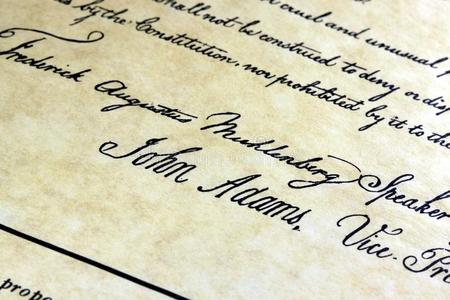 cruel and unusual
shall not be construed to deny or disp
s by the Constitution, nor prohibited by it to the
Frederick Augustus Muhlenberg Speaker
John Adams, Vice-Pre
propo